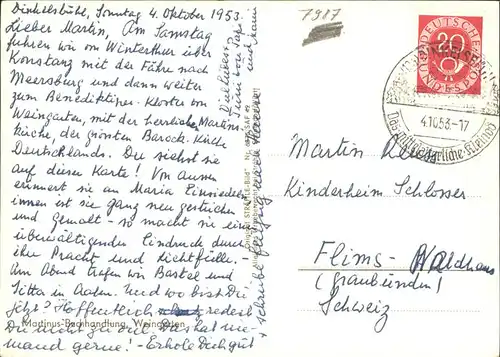 Dinkelsbühl, Sonntag 4. Oktober 1953.
Lieber Martin, Am Samstag
fuhren wir von Winterthur über
Konstanz mit der Fähre nach
Meersburg und dann weiter
zum Benediktiner-Kloster von
Weingarten, mit der herrlichen Martins-
kirche, der grössten Barock-Kirche
Deutschlands. Du siehst sie
auf dieser Karte! Von aussen
erinnert sie an Maria Einsiedeln
innen ist sie ganz neu gestrichen
und gemalt - so macht sie einen
überwältigenden Eindruck durch
ihre Pracht und Lichtfülle.
Am Abend trafen wir Bastel und
Titta in Aalen. Und wo bist Du
jetzt? Hoffentlich redest
Du nicht zu viel. Das hat nie-
mand gerne! - Erhole Dich gut
+ schreibe
Viel Liebes
von Papi
und Mami
Martinus-Buchhandlung, Weingarten
7987
DEUTSCHE
BUNDESPOST
20
DINKELSBÜHL
4.10.53-17
Das mittelalterliche Kleinod
Martin
Kinderheim Schlosser
Flims-Waldhaus
(Graubünden)
Schweiz